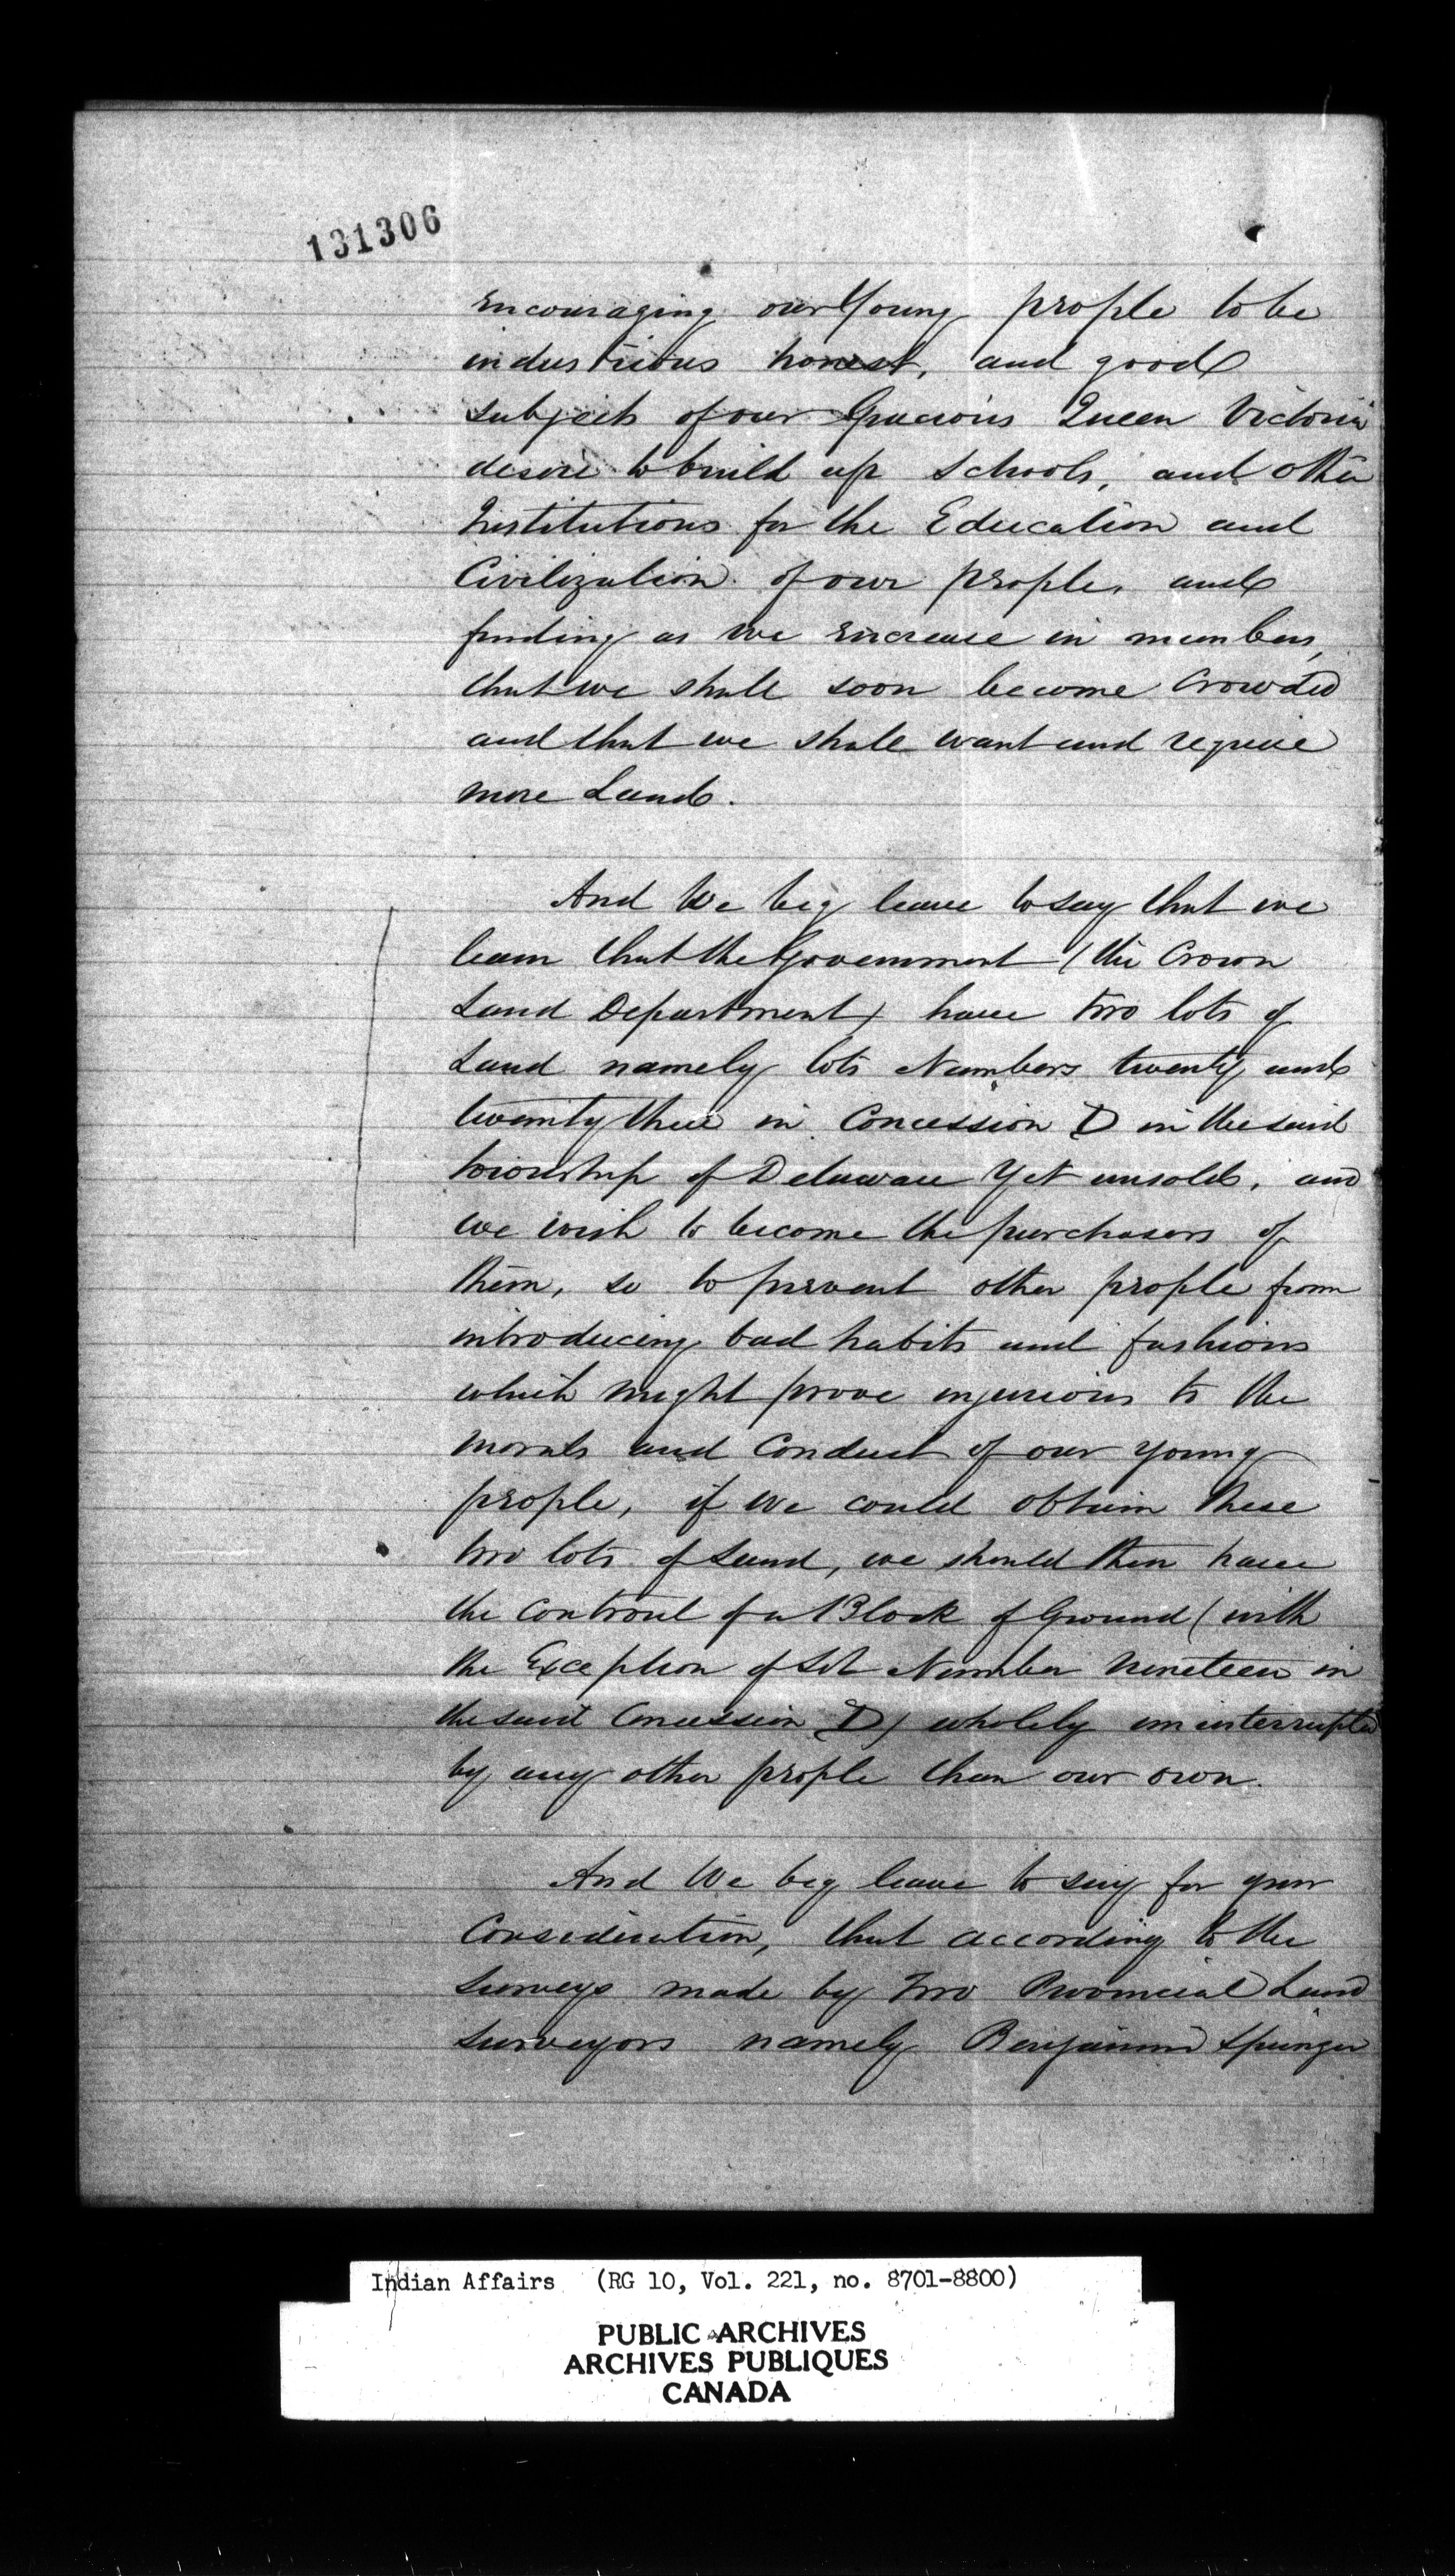 131306
encouraging our Young people to be
industrious honest, and good
subjects of our Gracious Queen Victoria
desire to build up Schools, and other
Institutions for the Education and
Civilization of our people, and
finding as we encrease in numbers,
that we shall soon become Crowded
and that we shall want and require
more Land.
And We beg leave to say that we
learn that the Government (the Crown
Land Department) have two lots of
Land namely lots Numbers twenty and
twenty three in Concession D in the said
township of Delaware Yet unsold, and
we wish to become the purchasers of
them, so to prevent other people from
introducing bad habits and fashions
which might prove injurious to the
morals and Conduct of our young
people, if we could obtain these
two lots of Land, we should then have
the Controul of a Block of Ground (with
the Exception of Lot Number Nineteen in
the said Concession D) wholely uninterrupted
by any other people than our own.
And We beg leave to say for your
Consideration, that according to the
Surveys made by Two Provincial Land
Surveyors namely Benjamin Springer
Indian Affairs (RG 10, Vol. 221, no. 8701-8800)
PUBLIC ARCHIVES
ARCHIVES PUBLIQUES
CANADA